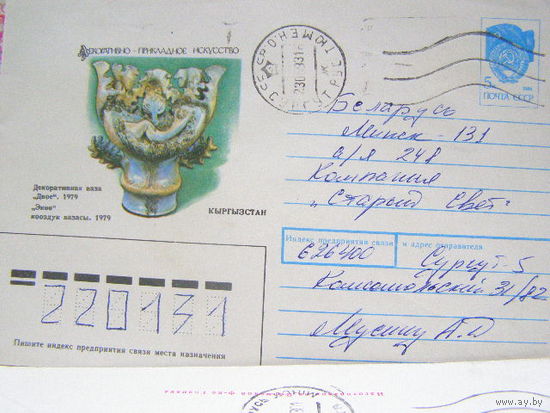 Декоративно - прикладное искусство
5к
ПОЧТА СССР
Беларусь
Минск - 131
а/я 248
Компания
"Старый Свет"
Декоративная ваза
„Двое", 1979
„Экөө"
кооздук вазасы. 1979
КЫРГЫЗСТАН
Индекс предприятия связи и адрес отправителя
626400 Сургут-5
31/82
220131
Пишите индекс предприятия связи места назначения
www.ay.by